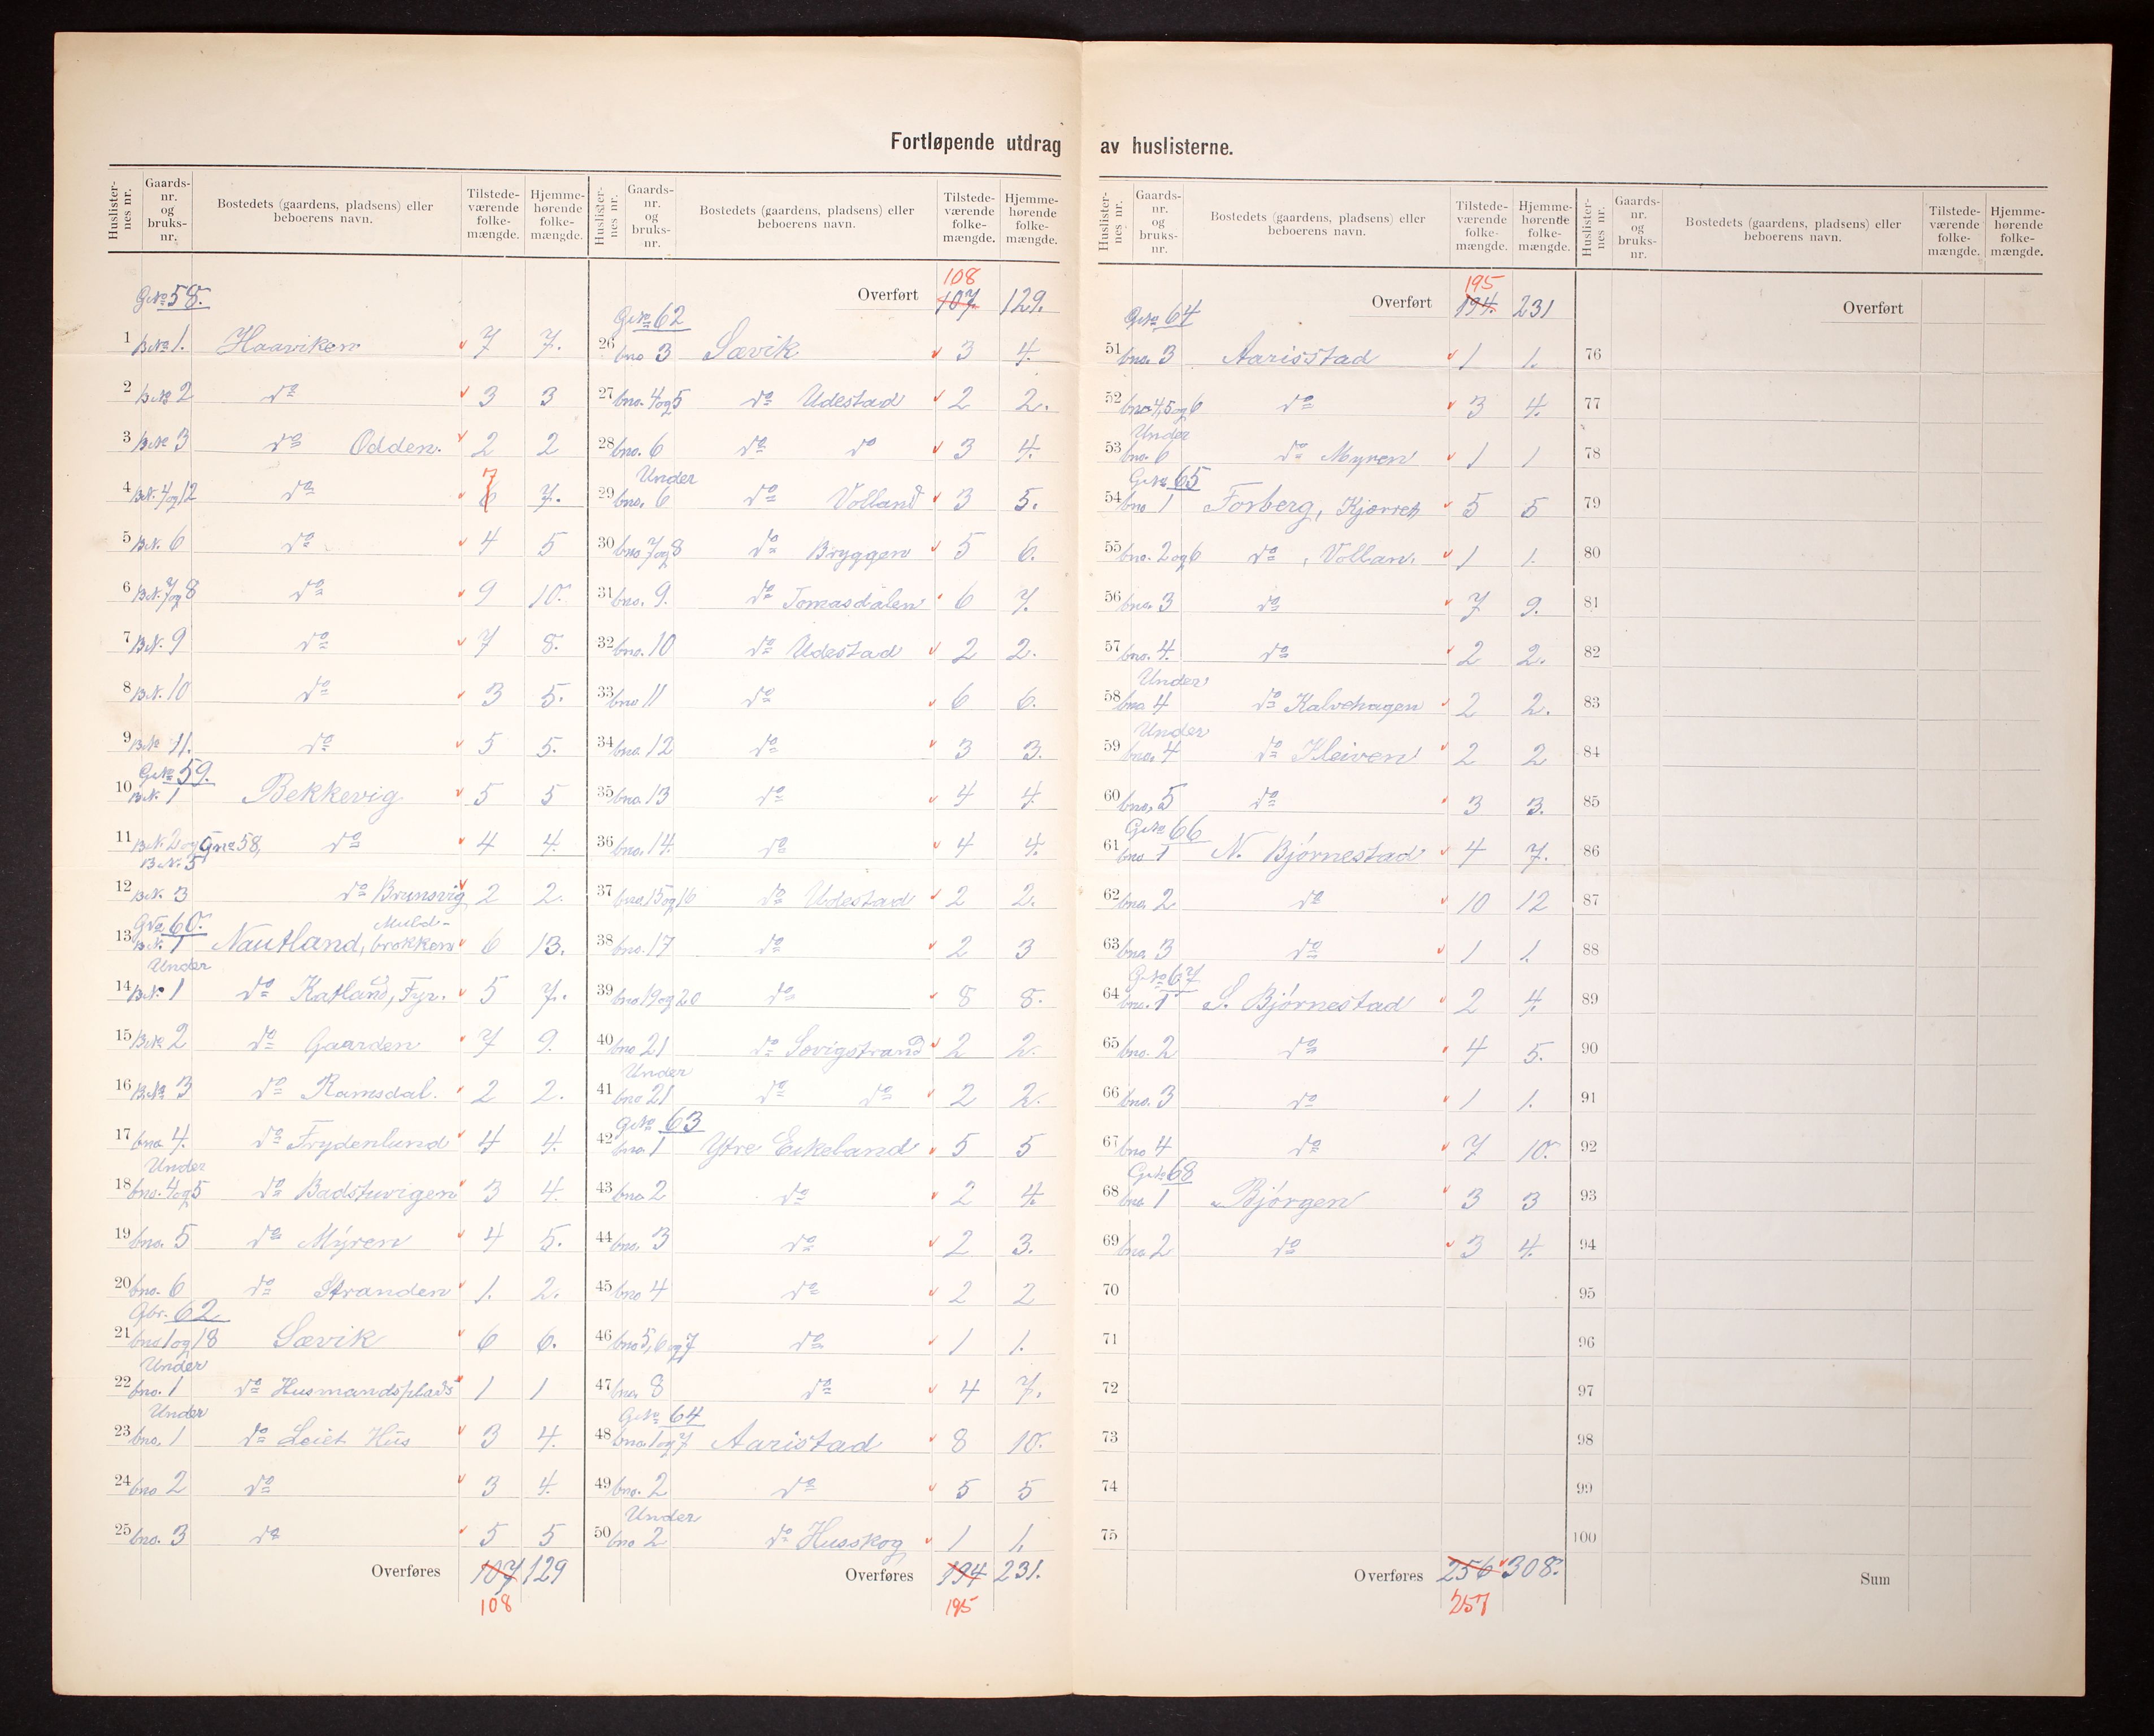 Fortløpende utdrag av huslisterne.
Huslisternes nr. Gaards-nr. og bruks-nr. Bostedets (gaardens, pladsens) eller beboerens navn. Tilstede-værende folke-mængde. Hjemme-hørende folke-mængde.
G.No 58.
1 B.No 1. Haaviken 7 7.
2 B.No 2 do 3 3
3 B.No 3 do Odden. 2 2
4 B.N. 4 og 12 do 6 7 7.
5 B.N. 6 do 4 5
6 B.N. 7 og 8 do 9 10.
7 B.N. 9 do 7 8.
8 B.N. 10 do 3 5.
9 B.No 11. do 5 5.
G.No 59.
10 B.N. 1 Bekkevig 5 5
11 B.N. 2 og Gno 58, B.N. 5 do 4 4.
12 B.N. 3 do Brunsvig 2 2.
G.No 60.
13 B.N. 1 Nautland, Muld-brokken 6 13.
Under
14 B.N. 1 do Katland, Fyr. 5 7.
15 B.No 2 do Gaarden 7 9.
16 B.No 3 do Ramsdal. 2 2.
17 bno 4. do Frydenlund 4 4.
Under
18 bno. 4 og 5 do Badstuvigen 3 4.
19 bno. 5 do Myren 4 5.
20 bno. 6 do Stranden 1. 2.
Gbr. 62
21 bno 1 og 18 Sævik 6 6.
Under
22 bno. 1 do Husmandsplads 1 1
Under
23 bno. 1 do Leiet Hus 3 4.
24 bno 2 do 3 4.
25 bno. 3 do 5 5
Overføres 107 129
108
Huslisternes nr. Gaards-nr. og bruks-nr. Bostedets (gaardens, pladsens) eller beboerens navn. Tilstede-værende folke-mængde. Hjemme-hørende folke-mængde.
108
Overført 107. 129.
G.No 62
26 bno 3 Sævik 3 4.
27 bno. 4 og 5 do Udestad 2 2.
28 bno. 6 do do 3 4.
Under
29 bno. 6 do Volland 3 5.
30 bno 7 og 8 do Bryggen 5 6.
31 bno. 9. do Tomasdalen 6 7.
32 bno. 10 do Udestad 2 2.
33 bno 11 do 6 6.
34 bno. 12 do 3 3.
35 bno. 13 do 4 4.
36 bno. 14. do 4 4.
37 bno. 15 og 16 do Udestad 2 2.
38 bno. 17 do 2 3
39 bno 19 og 20 do 8 8.
40 bno 21 do Sovigstrand 2 2.
Under
41 bno 21 do do 2 2.
G.No 63
42 bno. 1 Ytre Eikeland 5 5
43 bno 2 do 2 4.
44 bno. 3 do 2 3.
45 bno 4 do 2 2
46 bno 5, 6 og 7 do 1 1.
47 bno. 8 do 4 7.
G.No 64
48 bno. 1 og 7 Aaristad 8 10.
49 bno. 2 do 5 5
Under
50 bno 2 do Husskog 1 1.
Overføres 194 231.
195
Huslisternes nr. Gaards-nr. og bruks-nr. Bostedets (gaardens, pladsens) eller beboerens navn. Tilstede-værende folke-mængde. Hjemme-hørende folke-mængde.
195
Overført 194. 231
G.No 64
51 bno. 3 Aarisstad 1 1.
52 bno 4, 5 og 6 do 3 4.
Under
53 bno. 6 do Myren 1 1
G.No 65
54 bno 1 Forberg, Kjørren 5 5
55 bno. 2 og 6 do, Vollan. 1 1.
56 bno. 3 do 7 9.
57 bno. 4. do 2 2.
Under
58 bno 4 do Kalvehagen 2 2.
Under
59 bno. 4 do Kleiven 2 2
60 bno. 5 do 3 3.
G.No 66
61 bno 1 N. Bjørnestad 4 7.
62 bno. 2 do 10 12
63 bno. 3 do 1 1.
G.No 67
64 bno. 1 S. Bjørnestad 2 4.
65 bno. 2 do 4 5.
66 bno. 3 do 1 1.
67 bno 4 do 7 10.
G.No 68
68 bno 1 Bjørgen 3 3
69 bno 2 do 3 4.
70
71
72
73
74
75
Overføres 256 308.
257
Huslisternes nr. Gaards-nr. og bruks-nr. Bostedets (gaardens, pladsens) eller beboerens navn. Tilstede-værende folke-mængde. Hjemme-hørende folke-mængde.
Overført
76
77
78
79
80
81
82
83
84
85
86
87
88
89
90
91
92
93
94
95
96
97
98
99
100
Sum